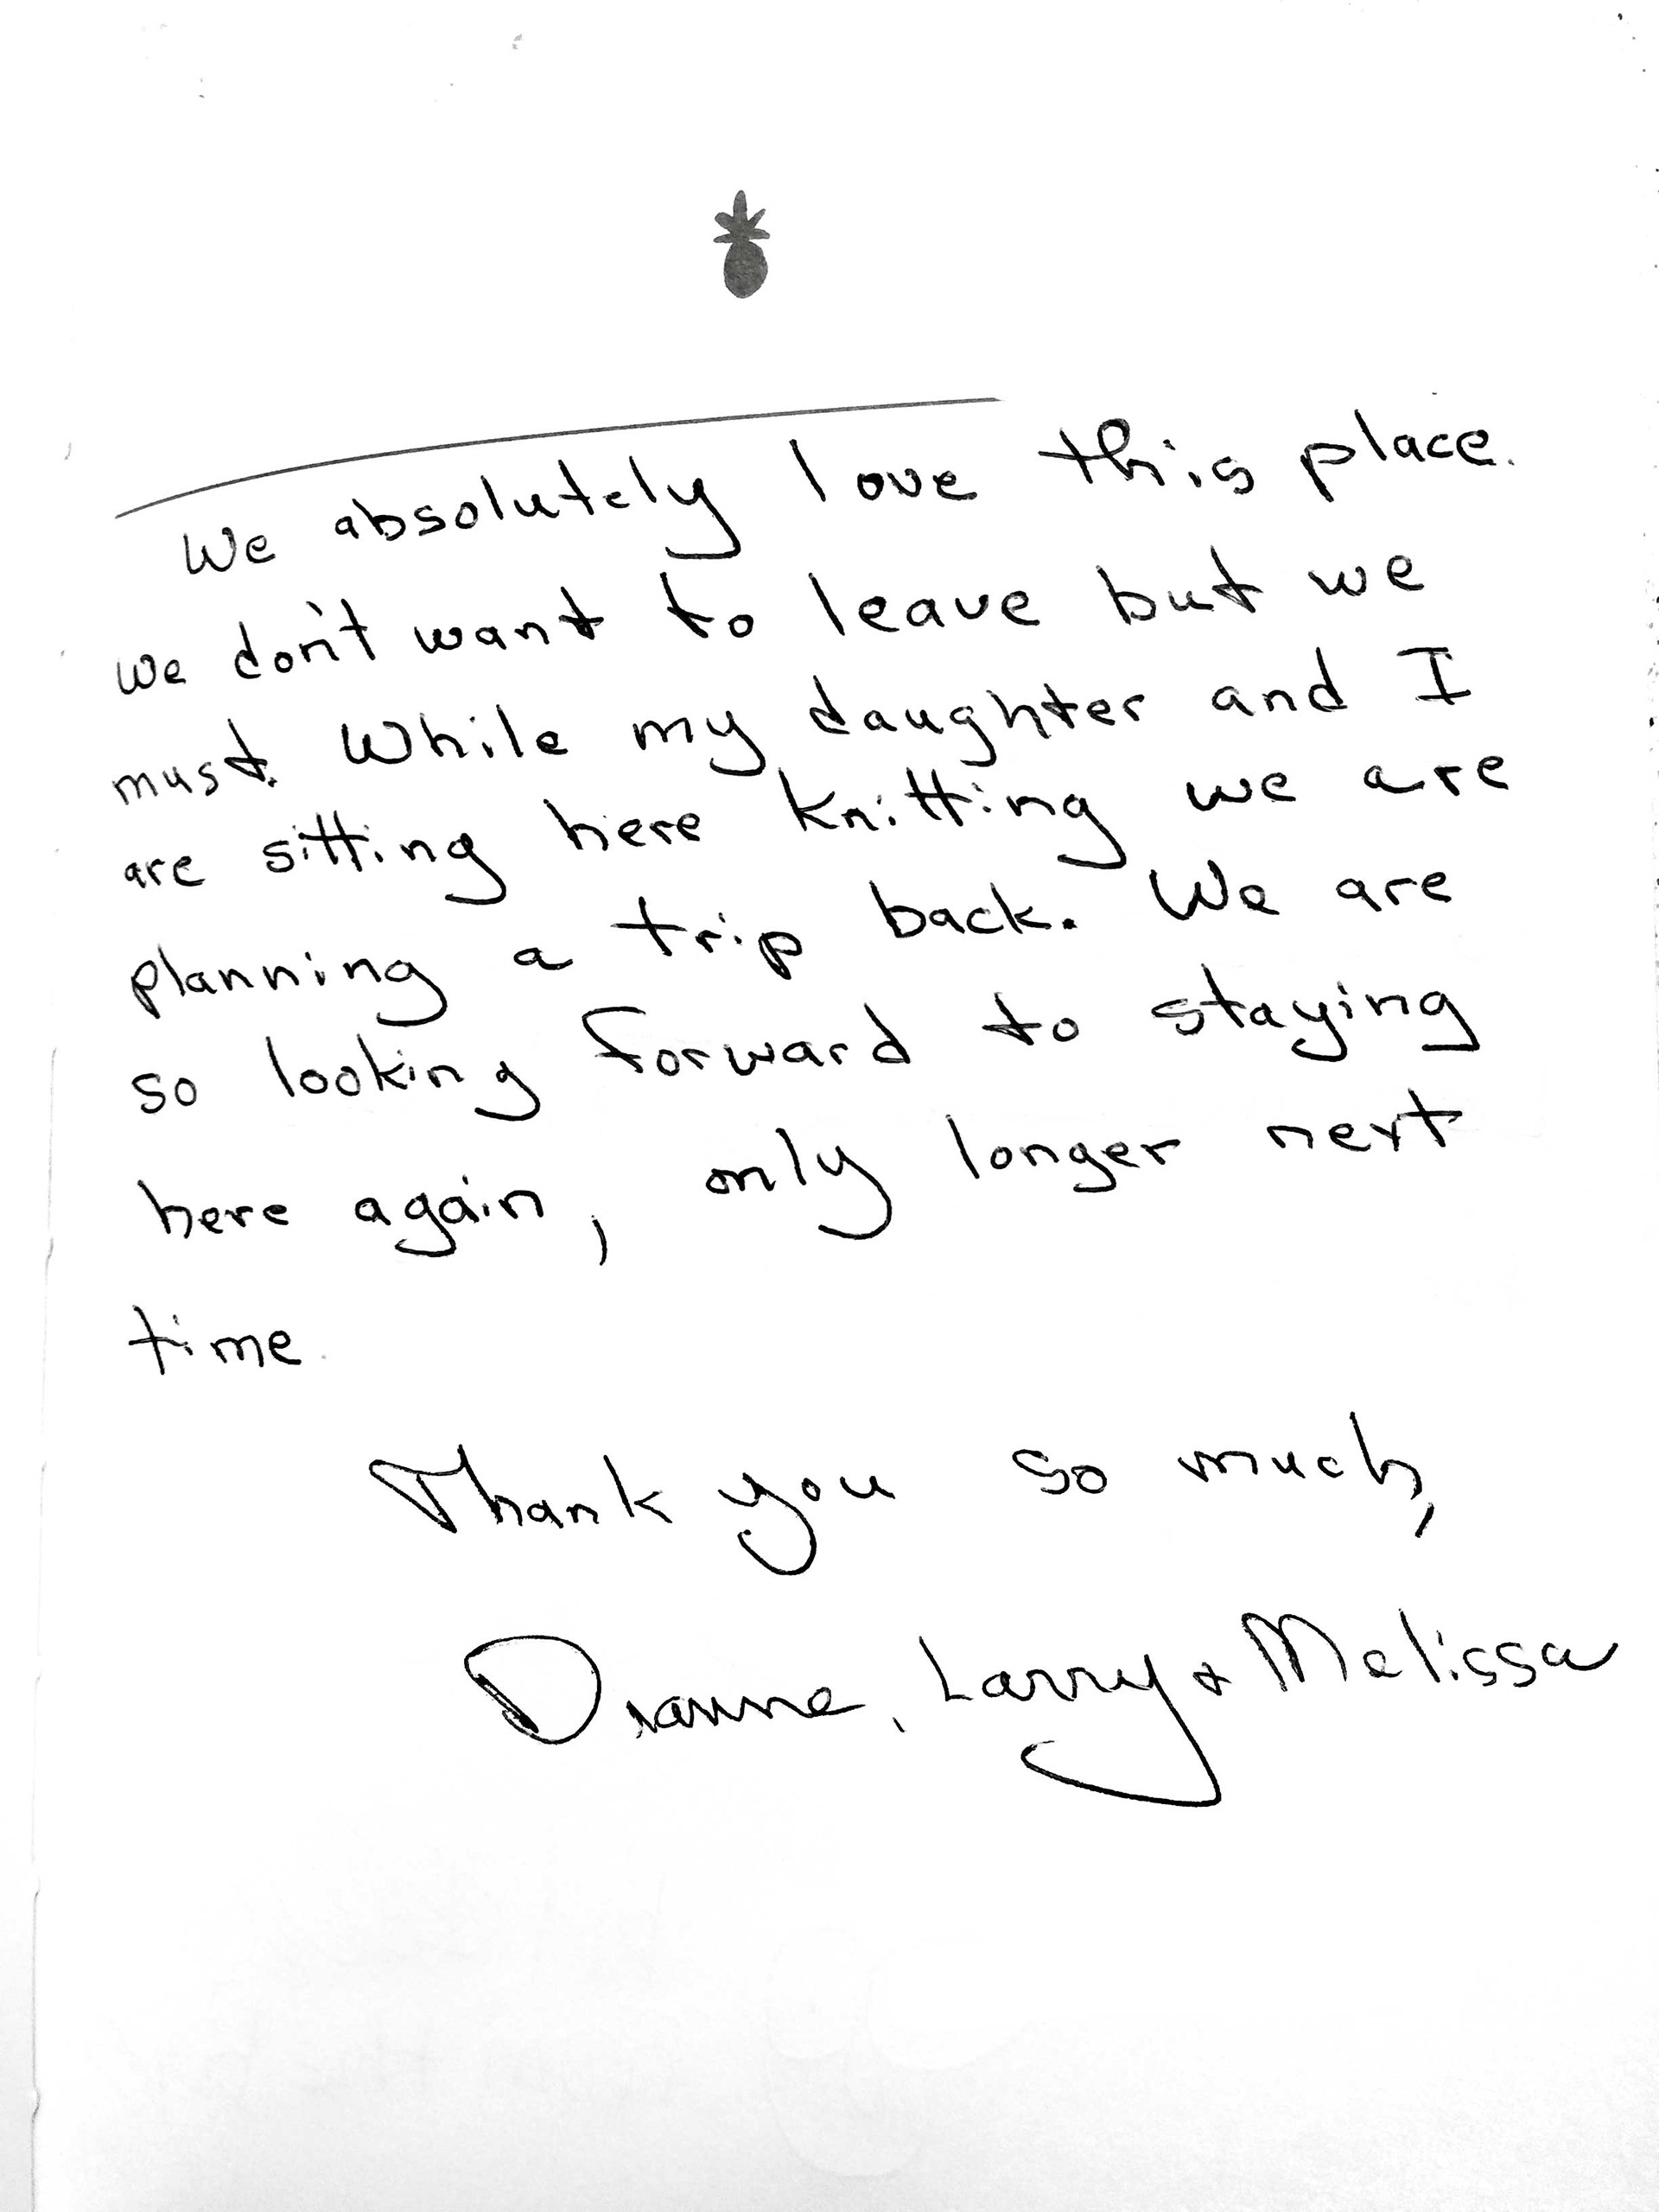 We absolutely love this place.
We don't want to leave but we
must. While my daughter and I
are sitting here knitting we are
planning a trip back. We are
so looking forward to staying
here again, only longer next
time.
Thank you so much,
Dianne, Larry + Melissa